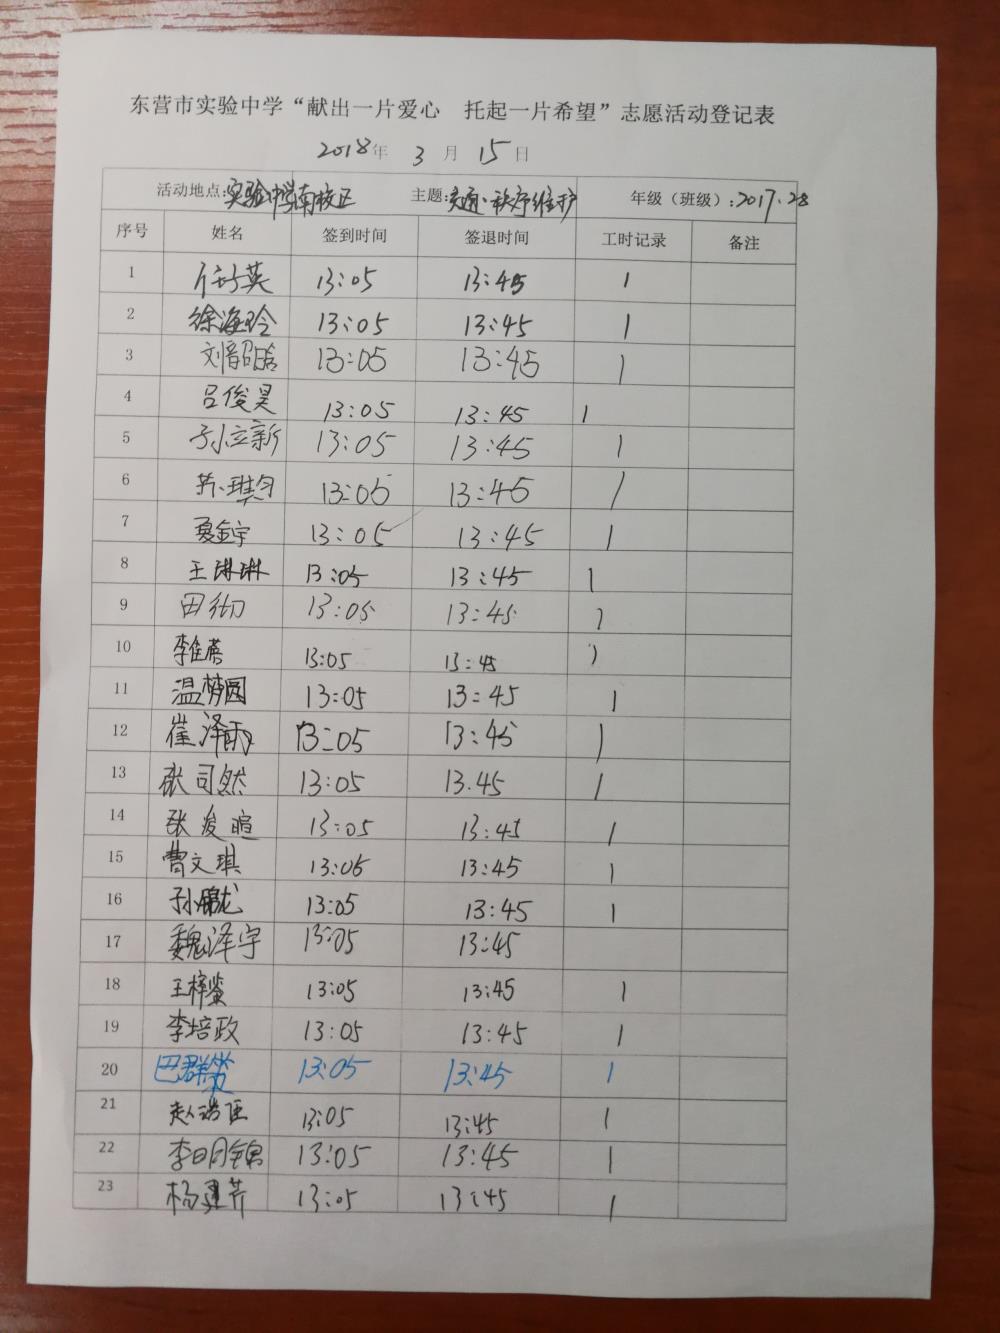 东营市实验中学“献出一片爱心 托起一片希望”志愿活动登记表
2018年 3月 15日
活动地点:实验中学南校区 主题:交通·秩序维护 年级（班级）:2017.28
序号 姓名 签到时间 签退时间 工时记录 备注
1 任于英 13:05 13:45 1
2 徐海玲 13:05 13:45 1
3 刘韶晗 13:05 13:45 1
4 吕俊昊 13:05 13:45 1
5 孙立新 13:05 13:45 1
6 13:05 13:45 1
7 夏金宇 13:05 13:45 1
8 王琳琳 13:05 13:45 1
9 田彻 13:05 13:45 1
10 李佳蔫 13:05 13:45 1
11 温梦园 13:05 13:45 1
12 崔泽雨 13:05 13:45 1
13 张司然 13:05 13.45 1
14 张浚暄 13:05 13:45 1
15 曹文琪 13:05 13:45 1
16 孙鹏龙 13:05 13:45 1
17 魏泽宇 13:05 13:45
18 王梓鉴 13:05 13:45 1
19 李培政 13:05 13:45 1
20 巴群 13:05 13:45 1
21 13:05 13:45 1
22 李明锦 13:05 13:45 1
23 杨建芹 13:05 13:45 1